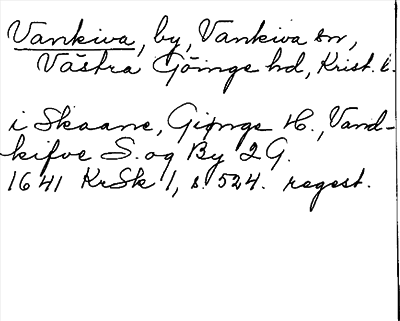 Vankiva, by, Vankiva sn,
Västra Göinge hd, Krist. l.
i Skaane, Giønge H., Vand-
kifve S. og By 2 G.
1641 KrSk 1, s. 524. regest.